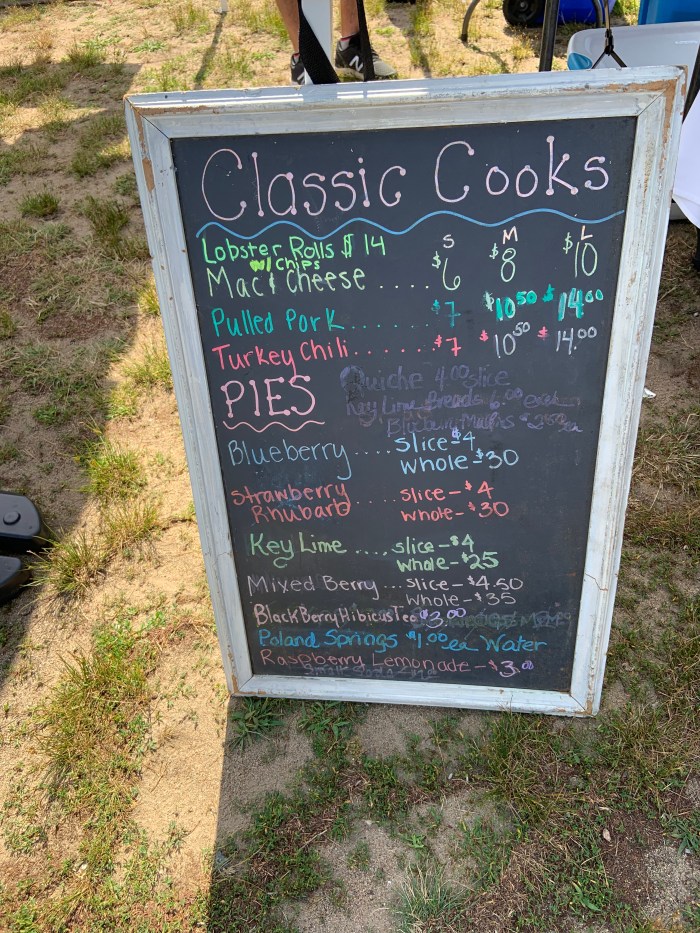 Classic Cooks
S M L
Lobster Rolls $14
w/ chips
Mac & Cheese ..... $6 $8 $10
Pulled Pork....... $7 $10 50 $14 00
Turkey Chili....... $7 $10 50 $14.00
PIES
Quiche 4.00 slice
Key Lime Breads 6.00 each
Blueberry Muffins
Blueberry .... slice - $4
whole - $30
Strawberry Rhubarb ..... slice - $4
whole - $30
Key Lime ...., slice - $4
whole - $25
Mixed Berry ... slice - $4.50
whole - $35
BlackBerry Hibicus Tea $3.00
Poland Springs $1.00 ea Water
Raspberry Lemonade - $3.00